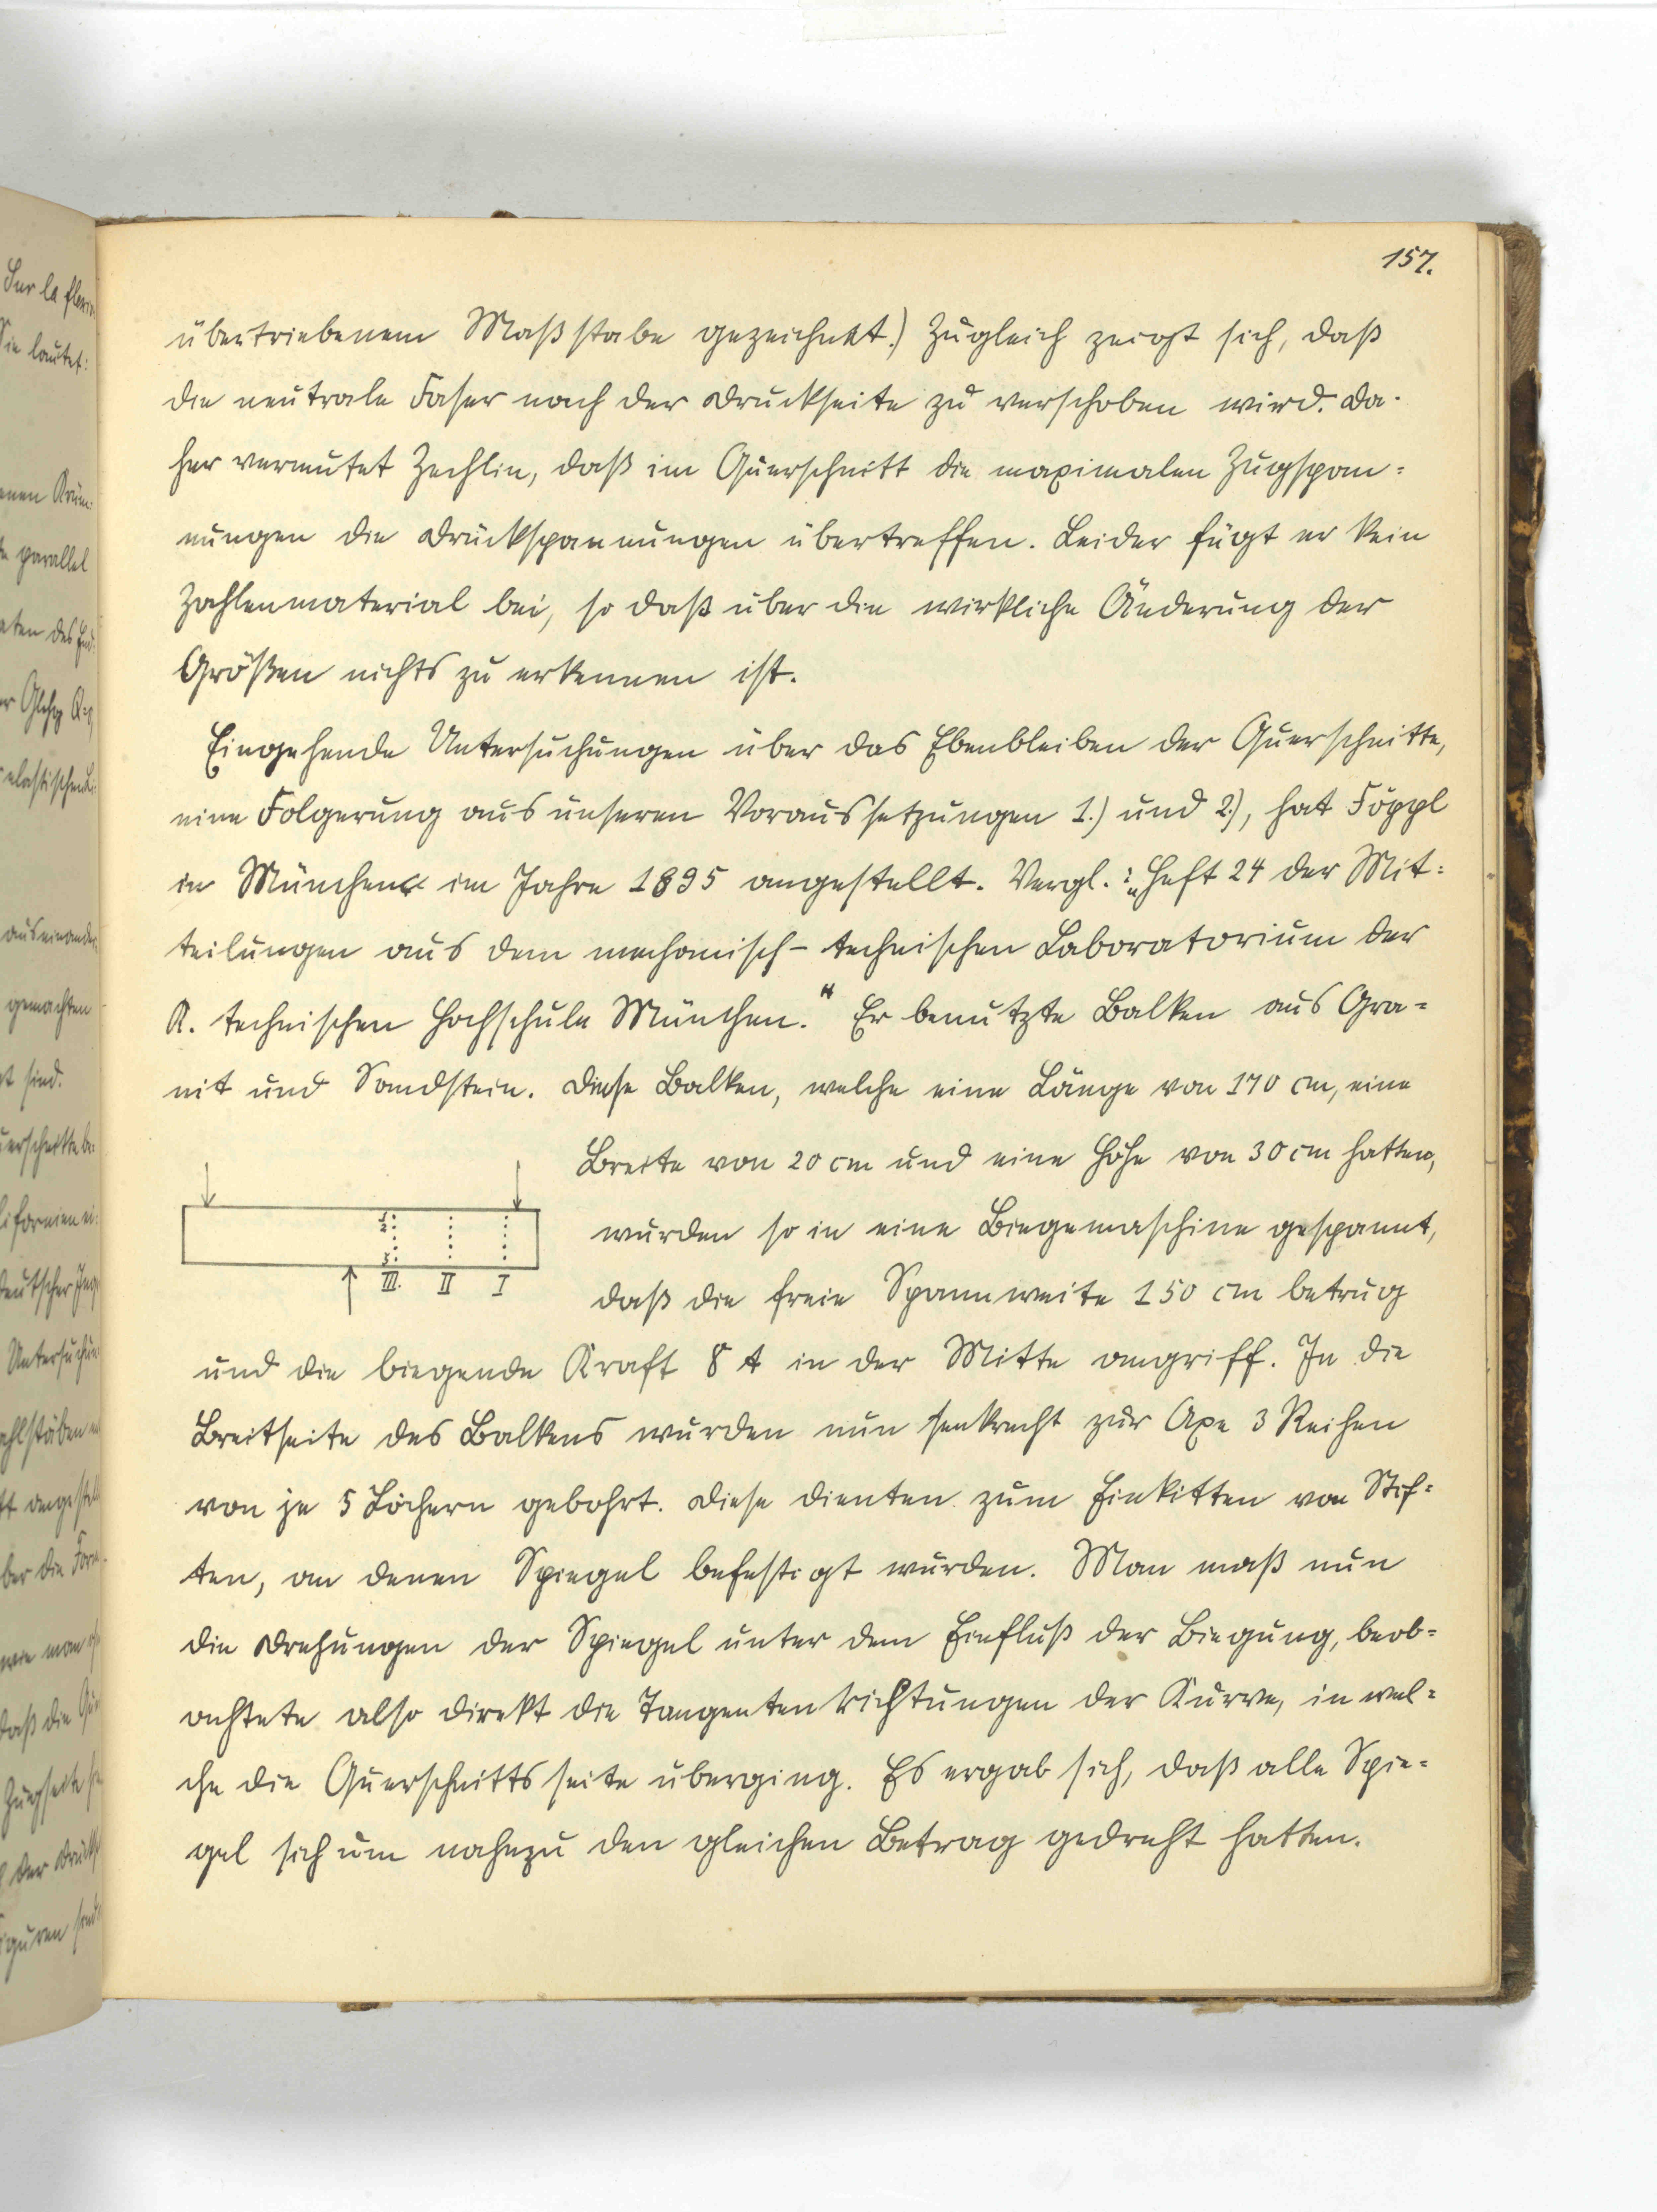 157.
übertriebenem Maßstabe gezeichnet.) Zugleich zeigt sich, daß
die neutrale Faser nach der Druckseite zu verschoben wird. Da-
her vermutet Zechlin, daß im Querschnitt die maximalen Zugspan=
nungen die Druckspannungen übertreffen. Leider fügt er kein
Zahlenmaterial bei, so daß über die wirkliche Änderung der
Größen nichts zu erkennen ist.
Eingehende Untersuchungen über das Ebenbleiben der Querschnitte,
eine Folgerung aus unseren Voraussetzungen 1.) und 2.), hat Föppl
in München im Jahre 1895 angestellt. Vergl.: „Heft 24 der Mit=
teilungen aus dem mechanisch-technischen Laboratorium der
K. technischen Hochschule München.“ Er benutzte Balken aus Gra=
nit und Sandstein. Diese Balken, welche eine Länge von 170 cm, eine
Breite von 20 cm und eine Höhe von 30 cm hatten,
wurden so in eine Biegemaschine gespannt,
daß die freie Spannweite 150 cm betrug
1 2 5
III. II I
und die biegende Kraft 8 t in der Mitte angriff. In die
Breitseite des Balkens wurden nun senkrecht zur Axe 3 Reihen
von je 5 Löchern gebohrt. Diese dienten zum Einkitten von Stif=
ten, an denen Spiegel befestigt wurden. Man maß nun
die Drehungen der Spiegel unter dem Einfluß der Biegung, beob=
achtete also direkt die Tangentenrichtungen der Kurve, in wel=
che die Querschnittsseite überging. Es ergab sich, daß alle Spie=
gel sich um nahezu den gleichen Betrag gedreht hatten.